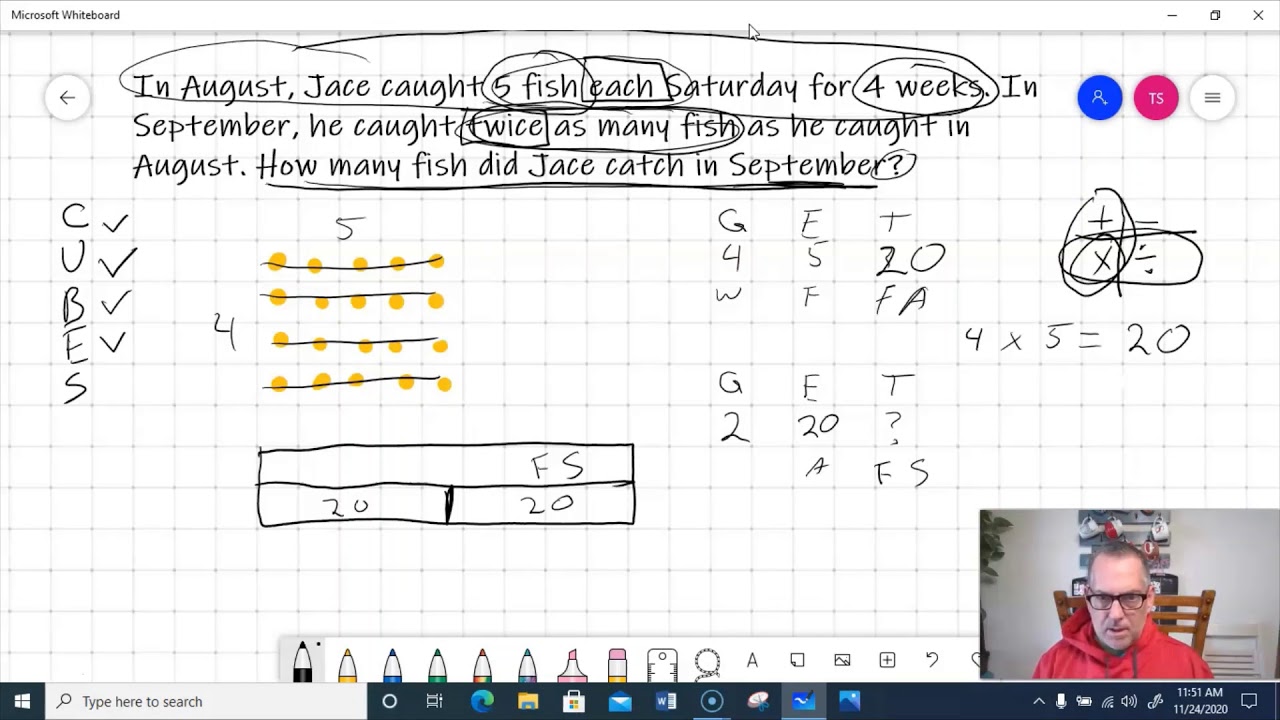 Microsoft Whiteboard
In August, Jace caught 5 fish each Saturday for 4 weeks. In
September, he caught twice as many fish as he caught in
August. How many fish did Jace catch in September?
TS
C ✓
U ✓
B ✓
E ✓
S
5
4
G E T
4 5 20
W F FA
+ -
× ÷
4 × 5 = 20
G E T
2 20 ?
A F S
F S
20 20
A
Type here to search
11:51 AM
11/24/2020